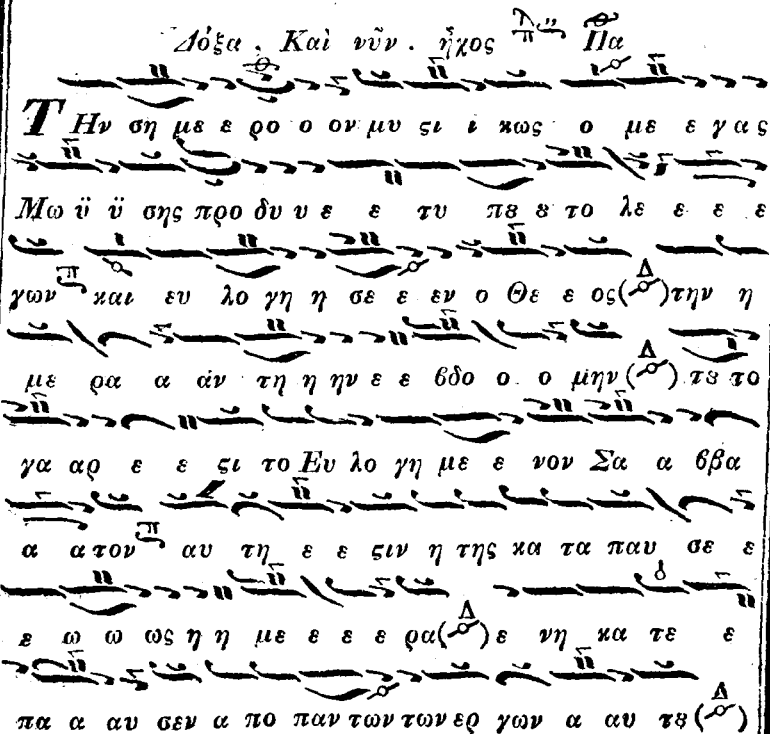 Δόξα . Καὶ νῦν . ἦχος π Πα
ΤΗν ση με ε ρο ο ον μυ ϛι ι κως ο με ε γα ς
Μω ϋ ϋ σης προ δυ υ ε ε τυ πȣ ȣ το λε ε ε ε
γων π και ευ λο γη η σε ε εν ο Θε ε ος (Δ) την η
με ρα α άν τη η ην ε ε βδο ο ο μην (Δ) τȣ το
γα αρ ε ε ϛι το Ευ λο γη με ε νον Σα α ββα
α α τον π αυ τη ε ε ϛιν η της κα τα παυ σε ε
ε ω ω ως η η με ε ε ε ρα (Δ) ε νη κα τε ε
πα α αυ σεν α πο παν των των ερ γων α αυ τȣ (Δ)